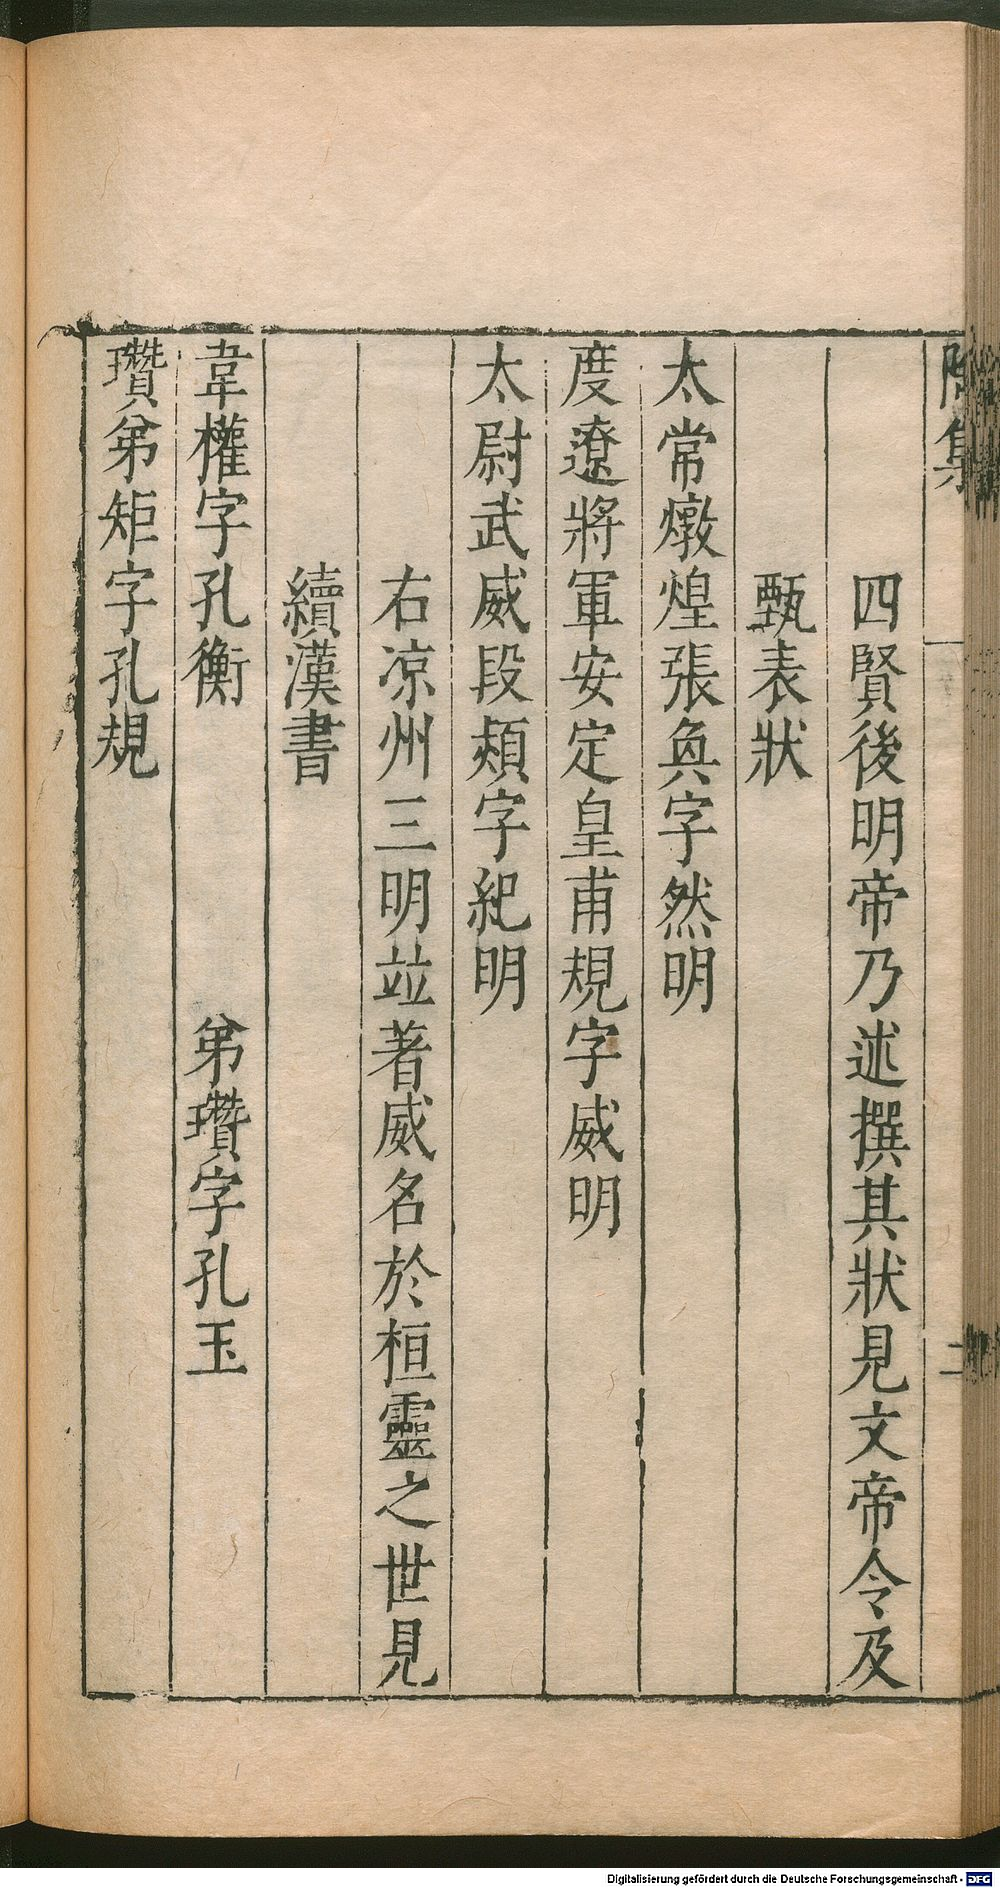 四賢後明帝乃述撰其狀見文帝令及
甄表狀
太常燉煌張奐字然明
度遼將軍安定皇甫規字威明
太尉武威段熲字紀明
右凉州三明並著威名於桓靈之世見
續漢書
韋權字孔衡 弟瓚字孔玉
瓚弟矩字孔規
Digitalisierung gefördert durch die Deutsche Forschungsgemeinschaft - DFG